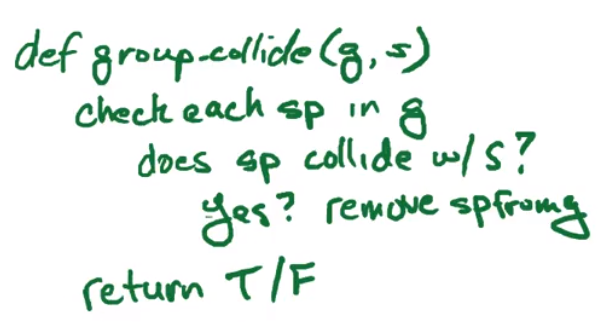 def group-collide (g, s)
check each sp in g
does sp collide w/ s?
yes? remove sp from g
return T/F